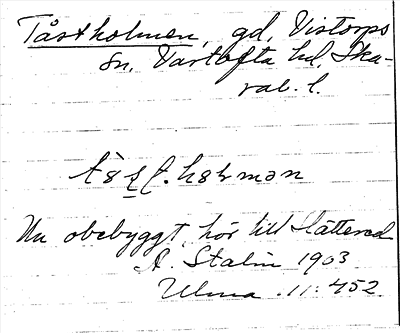 Tåstholmen, gd, Vistorps
sn, Vartofta hd, Ska-
rab. l.
Nu obebyggt, hör till Slättered
A. Stalin 1903
Ulma 11:452